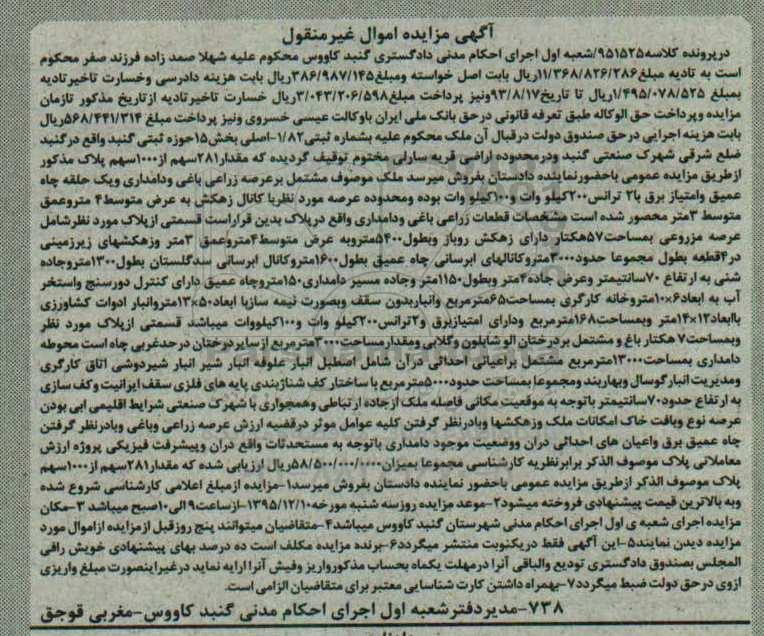 آگهی مزایده اموال غیرمنقول
درپرونده کلاسه۹۵۱۵۲۵/شعبه اول اجرای احکام مدنی دادگستری گنبد کاووس محکوم علیه شهلا صمد زاده فرزند صفر محکوم
است به تادیه مبلغ۱۱/۳۶۸/۸۲۶/۲۸۶ریال بابت اصل خواسته ومبلغ۳۸۶/۹۸۷/۱۴۵ریال بابت هزینه دادرسی وخسارت تاخیرتادیه
بمبلغ ۱/۴۹۵/۰۷۸/۵۲۵ریال تا تاریخ۹۳/۸/۱۷ونیز پرداخت مبلغ۳/۰۴۳/۲۰۶/۵۹۸ریال خسارت تاخیرتادیه ازتاریخ مذکور تازمان
مزایده وپرداخت حق الوکاله طبق تعرفه قانونی درحق بانک ملی ایران باوکالت عیسی خسروی ونیز پرداخت مبلغ ۵۶۸/۴۴۱/۳۱۴ریال
بابت هزینه اجرایی درحق صندوق دولت درقبال آن ملک محکوم علیه بشماره ثبتی۱/۸۲-اصلی بخش۱۵حوزه ثبتی گنبد واقع درگنبد
ضلع شرقی شهرک صنعتی گنبد ودرمحدوده اراضی قریه سارلی مختوم توقیف گردیده که مقدار۲۸۱سهم از۱۰۰۰سهم پلاک مذکور
ازطریق مزایده عمومی باحضورنماینده دادستان بفروش میرسد ملک موصوف مشتمل برعرصه زراعی باغی ودامداری ویک حلقه چاه
عمیق وامتیاز برق با۲ ترانس۲۰۰کیلو وات و۱۰۰کیلو وات بوده ومحدوده عرصه مورد نظربا کانال زهکش به عرض متوسط۴ متروعمق
متوسط ۳متر محصور شده است مشخصات قطعات زراعی باغی ودامداری واقع درپلاک بدین قراراست قسمتی ازپلاک مورد نظرشامل
عرصه مزروعی بمساحت۵۷هکتار دارای زهکش روباز وبطول۵۴۰۰متروبه عرض متوسط۴متروعمق ۳متر وزهکشهای زیرزمینی
در۴قطعه بطول مجموعا حدود۳۰۰۰متروکانالهای ابرسانی چاه عمیق بطول۱۶۰۰متروکانال ابرسانی سدگلستان بطول۱۳۰۰متروجاده
شنی به ارتفاع ۷۰سانتیمتر وعرض جاده۴متر وبطول۱۱۵۰متر وجاده مسیر دامداری۱۵۰متروچاه عمیق دارای کنترل دورسنج واستخر
آب به ابعاد۶×۱۰متروخانه کارگری بمساحت۶۵مترمربع وانباربدون سقف وبصورت نیمه سازبا ابعاد۵۰×۱۳متروانبار ادوات کشاورزی
باابعاد۱۲×۱۴متر وبمساحت۱۶۸مترمربع ودارای امتیازبرق و۲ترانس۲۰۰کیلو وات و۱۰۰کیلووات میباشد قسمتی ازپلاک مورد نظر
وبمساحت۷ هکتار باغ و مشتمل بردرختان الو شابلون وگلابی ومقدارمساحت۳۰۰۰مترمربع ازسایردرختان درحدغربی چاه است محوطه
دامداری بمساحت۱۳۰۰۰مترمربع مشتمل براعیانی احداثی دران شامل اصطبل انبار علوفه انبار شیر انبار شیردوشی اتاق کارگری
ومدیریت انبارگوسال وبهاربند ومجموعا بمساحت حدود۵۰۰۰مترمربع باساختار کف شناژبندی پایه های فلزی سقف ایرانیت وکف سازی
به ارتفاع حدود۷۰سانتیمتر باتوجه به موقعیت مکانی فاصله ملک ازجاده ارتباطی وهمجواری با شهرک صنعتی شرایط اقلیمی ابی بودن
عرصه نوع وبافت خاک امکانات ملک وزهکشها وبادرنظر گرفتن کلیه عوامل موثر درقضیه ارزش عرصه زراعی وباغی وبادرنظر گرفتن
چاه عمیق برق واعیان های احداثی دران ووضعیت موجود دامداری باتوجه به مستحدثات واقع دران وپیشرفت فیزیکی پروژه ارزش
معاملاتی پلاک موصوف الذکر برابرنظریه کارشناسی مجموعا بمیزان۵۸/۵۰۰/۰۰۰/۰۰۰ریال ارزیابی شده که مقدار۲۸۱سهم از۱۰۰۰سهم
پلاک موصوف الذکر ازطریق مزایده عمومی باحضور نماینده دادستان بفروش میرسد۱-مزایده ازمبلغ اعلامی کارشناسی شروع شده
وبه بالاترین قیمت پیشنهادی فروخته میشود۲-موعد مزایده روزسه شنبه مورخه۱۳۹۵/۱۲/۱۰-ازساعت۹الی۱۰صبح میباشد ۳-مکان
مزایده اجرای شعبه ی اول اجرای احکام مدنی شهرستان گنبد کاووس میباشد۴-متقاضیان میتوانند پنج روزقبل ازمزایده ازاموال مورد
مزایده دیدن نمایند۵-این آگهی فقط دریکنوبت منتشر میگردد۶-برنده مزایده مکلف است ده درصد بهای پیشنهادی خویش رافی
المجلس بصندوق دادگستری تودیع والباقی آنرا درمهلت یکماه بحساب مذکورواریز وفیش آنرا ارایه نماید درغیراینصورت مبلغ واریزی
ازوی درحق دولت ضبط میگردد۷-بهمراه داشتن کارت شناسایی معتبر برای متقاضیان الزامی است.
۷۳۸-مدیردفترشعبه اول اجرای احکام مدنی گنبد کاووس-مغربی قوجق